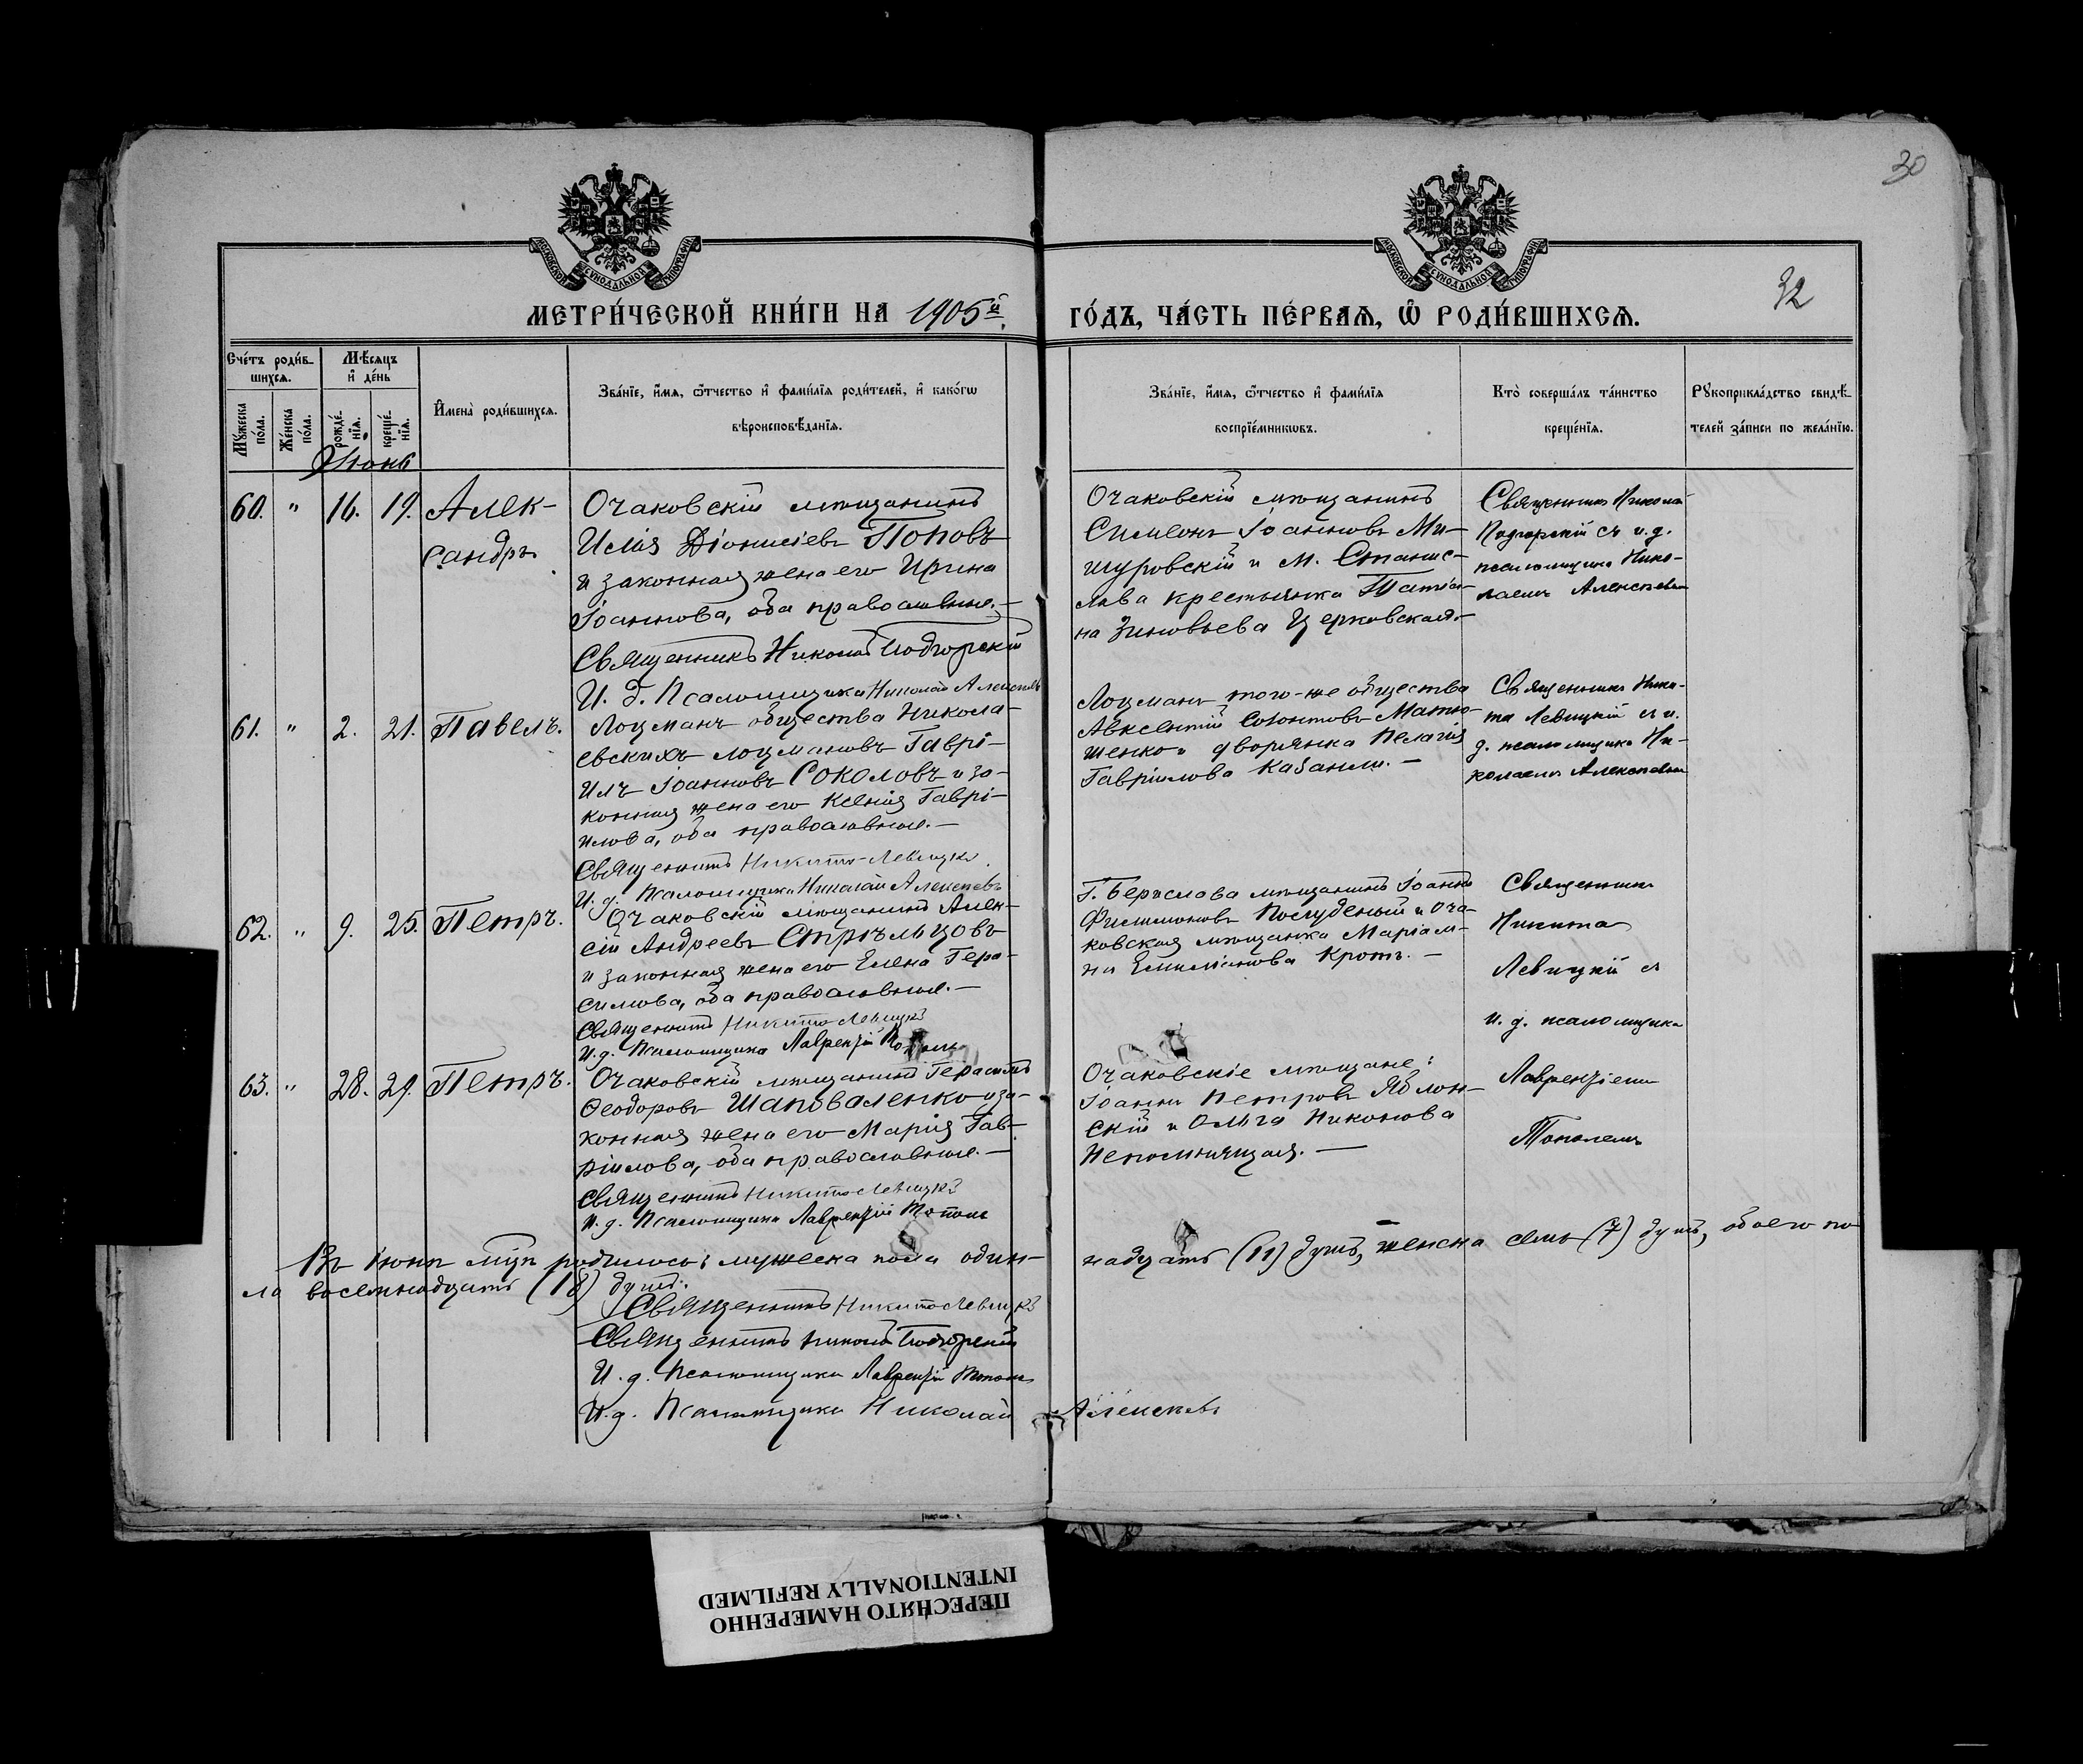 30
32
МОСКОВСКОЙ СѴНОДАЛЬНОЙ ТИПОГРАФІИ
МОСКОВСКОЙ СѴНОДАЛЬНОЙ ТИПОГРАФІИ
МЕТРИ́ЧЕСКОЙ КНИ́ГИ НА 1905й
ГО́ДЪ, ЧА́СТЬ ПЕ́РВАѦ, Ѽ РОДИ́ВШИХСѦ.
Сче́тъ роди́в-
шихсѧ.
Мѣ́сѧцъ
и҆ де́нь
Мꙋ́жеска
по́ла.
Же́нска
по́ла.
рожде́-
нїѧ.
креще́-
нїѧ.
И҆мена̀ роди́вшихсѧ.
Зва́нїе, и҆́мѧ, ѻ҆́тчество и҆ фами́лїѧ роди́телей, и҆ како́гѡ
вѣроисповѣ́данїѧ.
Зва́нїе, и҆́мѧ, ѻ҆́тчество и҆ фами́лїѧ
воспрїе́мникѡвъ.
Кто̀ соверша́лъ та́инство
креще́нїѧ.
Рꙋкоприкла́дство свидѣ́-
телей за́писи по жела́нїю.
Іюнь
60. " 16. 19. Алек-
сандръ
Очаковскій мѣщанинъ
Илія Діонисіевъ Поповъ
и законная жена его Ирина
Іоаннова, оба православные.—
Священникъ Николай Подгорскій
И. д. Псаломщика Николай Алексѣевъ
Очаковскій мѣщанинъ
Симеонъ Іоанновъ Ми-
шуровскій и М. Станис-
лава крестьянка Татіа-
на Зиновьева Церковская.
Священникъ Никола
Подгорскій съ и.д.
псаломщика Нико-
лаемъ Алексѣевым
61. " 2. 21. Павелъ.
Лоцманъ общества Никола-
евскихъ лоцмановъ Гаврі-
илъ Іоанновъ Соколовъ и за-
конная жена его Ксенія Гаврі-
илова, оба православные.—
Священникъ Никита Левицкі
И. д. Псаломщика Николай Алексѣевъ
Лоцманъ того-же общества
Авксентій Матю-
шенко и дворянка Пелагія
Гавріилова Казанли.—
Священникъ Ники-
та Левицкій съ и.
д. псаломщика Ни-
колаемъ Алексѣевым
62. " 9. 25. Петръ.
Очаковскій мѣщанинъ Алек-
сій Андреевъ Стрѣльцовъ
и законная жена его Елена Гера-
симова, оба православные.—
Священникъ Никита Левицкі
И. д. Псаломщика Лаврентій
Г. Берислава мѣщанинъ Іоаннъ
Филимоновъ и Оча-
ковская мѣщанка Маріам-
на Емиліанова Кротъ.—
Священникъ
Никита
Левицкій съ
и. д. псаломщика
Лаврентіемъ
Тополемъ
63. " 28. 29. Петръ.
Очаковскій мѣщанинъ Герасимъ
Ѳеодоровъ Шаповаленко и за-
конная жена его Марія Гав-
ріилова, оба православные.—
Священникъ Никита Левицкі
И. д. Псаломщика Лаврентій Тополь
Очаковскіе мѣщане:
Іоаннъ Петровъ Яблон-
скій и Ольга Никонова
Непомнящая.—
Въ Іюнѣ мцѣ родилось: мужеска пола один-
надцать (11) душъ, женска семь (7) душъ, обоего по-
ла восемнадцать (18) душъ.
Священникъ Никита Левицкі
Священникъ Николай Подгорскій
И. д. Псаломщика Лаврентій Тополь
И. д. Псаломщика Николай Алексѣевъ
ПЕРЕСНЯТО НАМЕРЕННО
INTENTIONALLY REFILMED